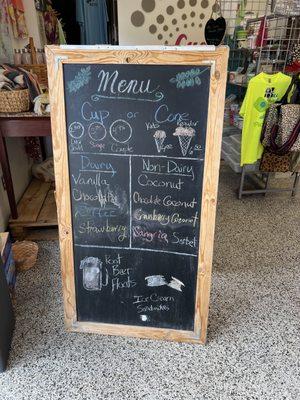 Menu
Cup or Cone
Keto Regular
Single Couple
Dairy
Vanilla
Chocolate
Coffee
Strawberry
Non-Dairy
Coconut
Chocolate Coconut
Cranberry Coconut
Sangria Sorbet
Root
Beer
Floats
Ice Cream
Sandwiches